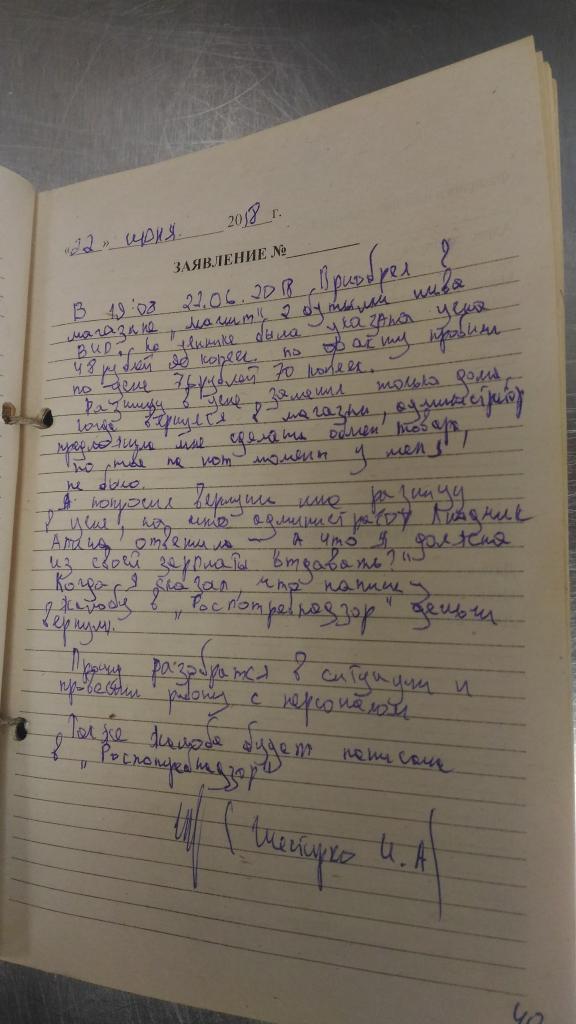 «22» июня 2018 г.
ЗАЯВЛЕНИЕ №
В 19:08 22.06.2018 Приобрел в
магазине „магнит" 2 бутылки пива
BUD. На ценнике была указана цена
48 рублей 90 копеек. по факту пробили
по цене 71 рублей 70 копеек.
Разницу в цене заметил только дома,
когда вернулся в магазин, администратор
предложила мне сделать обмен товара,
но на тот момент у меня
не было.
Я попросил вернуть мне разницу
в цене, на что администратор
ответила – А что я должна
из своей зарплаты отдавать?"
Когда я сказал, что напишу
жалобу в „Роспотребнадзор" деньги
вернули.
Прошу разобратся в ситуации и
провести работу с персоналом
Также жалоба будет написана
в „Роспотребнадзор"
И. А
40